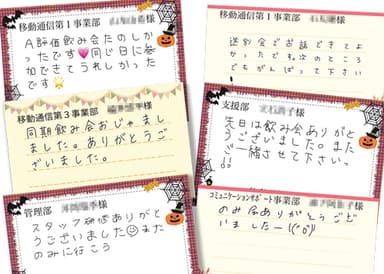 移動通信第1事業部 様
A評価飲み会たのしか
ったです💗同じ日に参
加できてうれしかった
です🌟
移動通信第1事業部 様
送別会でお話できてよ
かったです。次のところ
でもがんばって下さい
移動通信第3事業部 様
同期飲み会おじゃまし
ました。ありがとうご
ざいました。
支援部 子様
先日は飲み会ありがと
うございました。また
ご一緒させて下さいっ
!!
管理部 季様
スタッフ研修ありがと
うございました☺また
のみに行こう
コミュニケーションサポート事業部 様
のみ会ありがとうござ
いましたー!(^o^)!